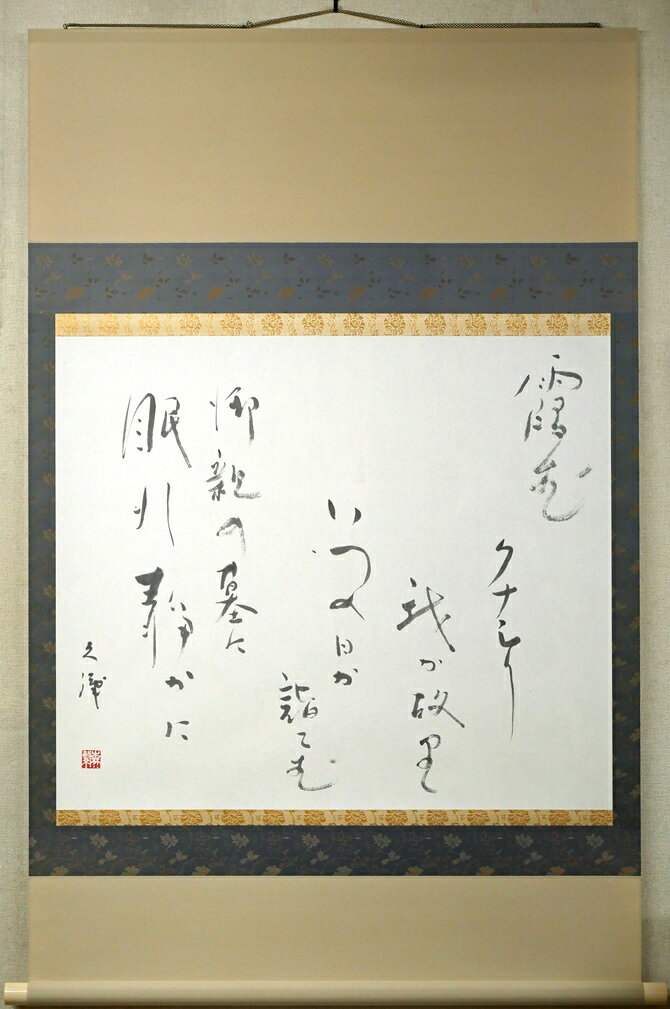 霞む
クナシリ
我が故里
いつの日か
詣でむ
御親の墓に
眠れ静かに
久彌